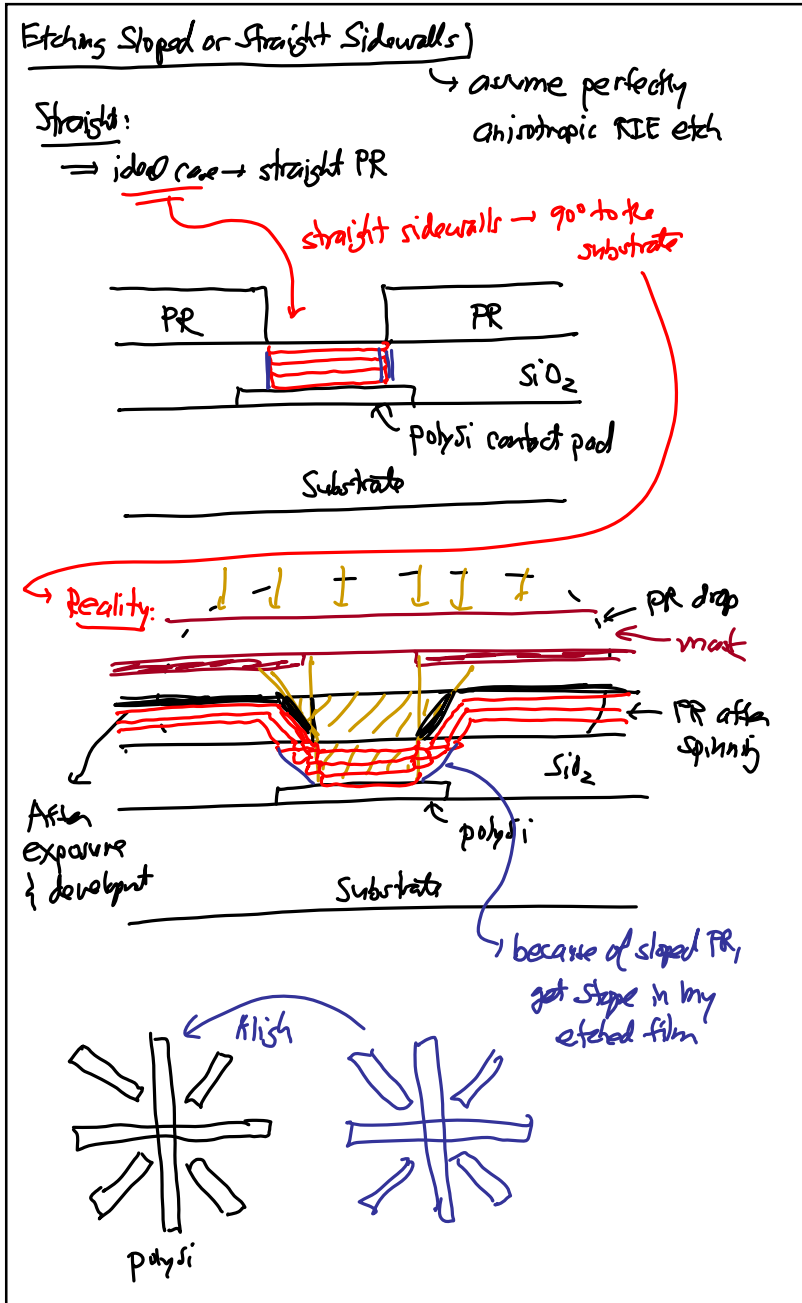 Etching Sloped or Straight Sidewalls
→ assume perfectly
anisotropic RIE etch
Straight:
⇒ ideal case → straight PR
straight sidewalls → 90° to the
substrate
PR
PR
SiO2
polySi contact pad
Substrate
Reality:
PR drop
mask
PR after
spinning
SiO2
After
exposure
& developmt
polySi
Substrate
because of sloped PR,
get slope in my
etched film
Align
polySi